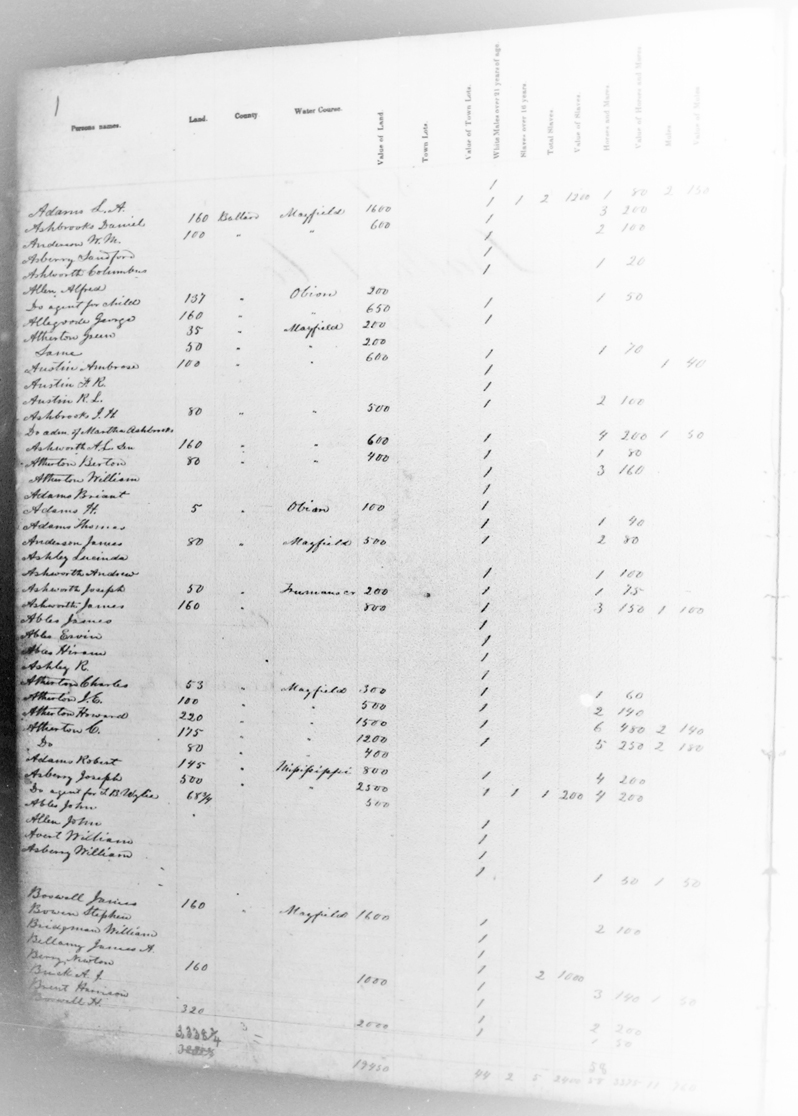 1
Persons names. Land. County Water Course. Value of Land. Town Lots. Value of Town Lots. White Males over 21 years of age. Slaves over 16 years Total Slaves Value of Slaves. Horses and Mares. Value of Horses and Mares. Mules Value of Mules
Adams L. A. 1 1 2 1200 1 80 2 150
Ashbrooks Daniel 160 Ballard Mayfield 1600 1 3 200
Anderson W. M. 100 " " 600 1 2 100
Asberry Sandford 1
Ashworth Columbus 1 1 20
Allen Alfred
Do agent for child 137 " Obion 200 1 1 50
Allegoode George 160 " " 650 1
Atherton Green 35 " Mayfield 200
Same 50 " " 200 1 1 70
Austin Ambrose 100 " " 600 1 1 40
Austin F. R. 1
Austin R. L. 1 2 100
Ashbrooks J. H. 80 " " 500
Do adm of Martha Ashbrooks 1 4 200 1 50
Ashworth A. L. 160 " " 600 1 1 80
Atherton Berton 80 " " 400 1 3 160
Atherton William 1
Adams Briant 1
Adams H. 5 " Obion 100 1
Adams Thomas 1 1 40
Anderson James 80 " Mayfield 500 1 2 80
Ashley Lucinda
Ashworth Andrew 1 1 100
Ashworth Joseph 50 " 200 1 1 75
Ashworth James 160 " 800 1 3 150 1 100
Ables James 1
Ables Ervin 1
Ables Hiram 1
Ashley R. 1
Atherton Charles 53 " Mayfield 300 1 1 60
Atherton J. E. 100 " " 500 1 2 140
Atherton Howard 220 " " 1500 1 6 480 2 140
Atherton C. 175 " " 1200 1 5 250 2 180
Do 80 " " 400
Adams Robert 145 " Mississippi 800 1 4 200
Asberry Joseph 500 " " 2500 1 1 1 200 4 200
Do agent for L B Wylie 68¾ 500
Ables John 1
Allen John 1
Avert William 1
Asberry William 1 1 50 1 50
Boswell James 160 " Mayfield 1600 1
Bowen Stephen 1 2 100
Bridgman William 1
Bellamy James A. 1
Berry Newton 160 1000 1 2 1000
Brick A. J. 1 3 140 1 50
Brent Harrison 1
Boswell H. 320 2000 1 2 200
1 50
19450 44 2 5 2400 58